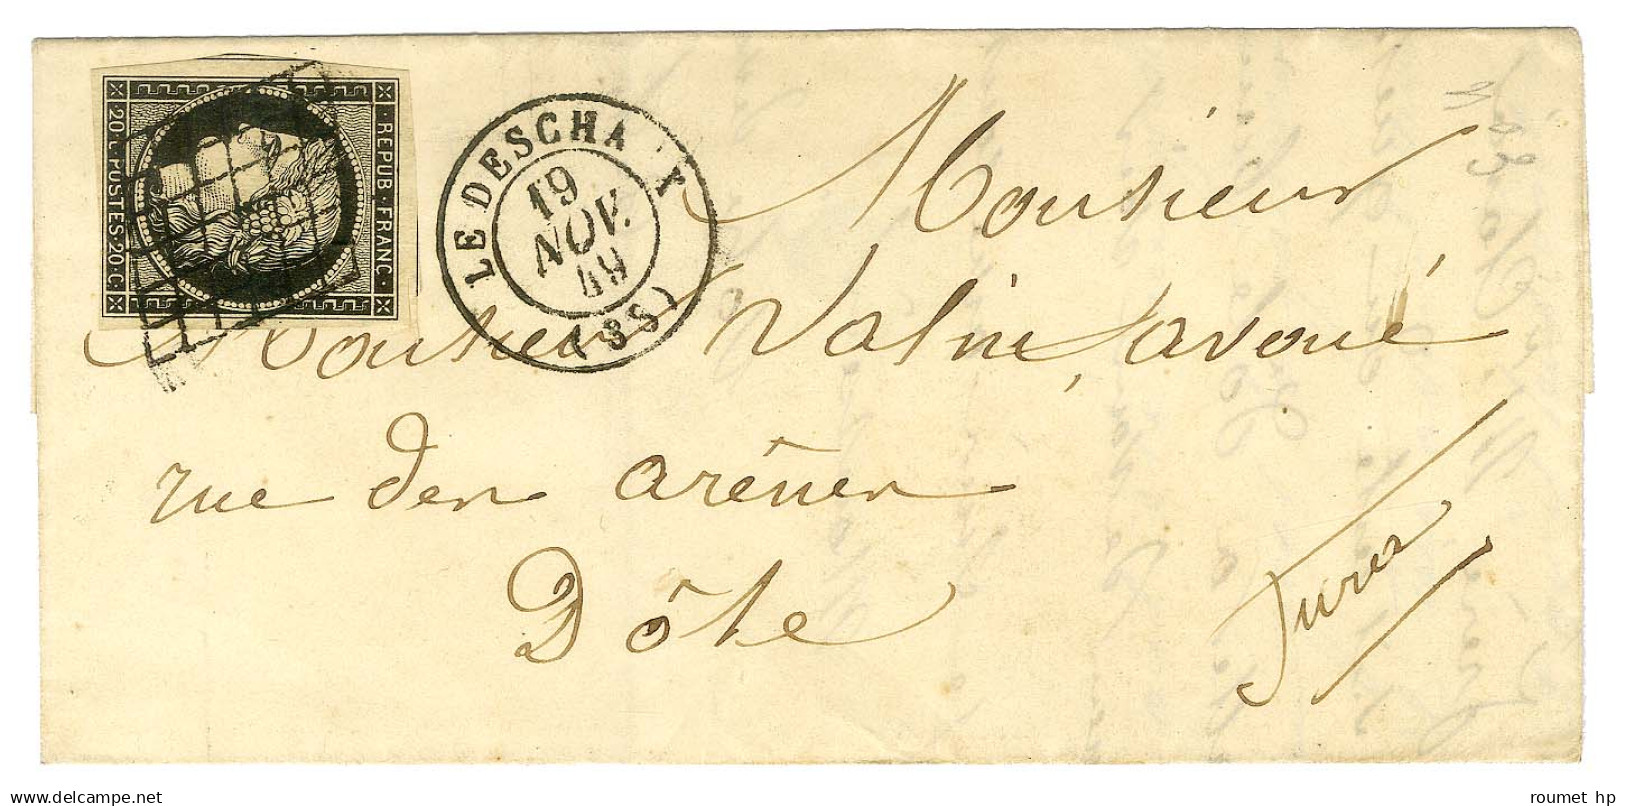 REPUB·FRANC·
20·C·POSTES·20·C·
LE DESCHA Y
19
NOV.
49
(38)
Monsieur
Monsieur Valni, avoué
rue des arênes
Dôle
Jura
www.delcampe.net
roumet hp